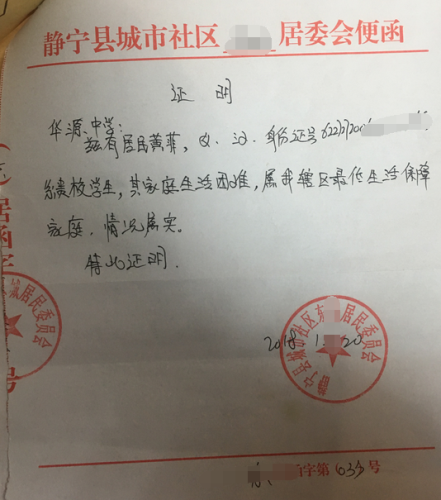 静宁县城市社区 居委会便函
证 明
华源中学:
兹有居民黄菲,女,汉,身份证号622
系贵校学生,其家庭生活困难,属我辖区最低生活保障
家庭,情况属实。
特此证明.
居民委员会
静宁县城市社区东 居民委员会
2018 1 20
居函字
号
字第 633 号